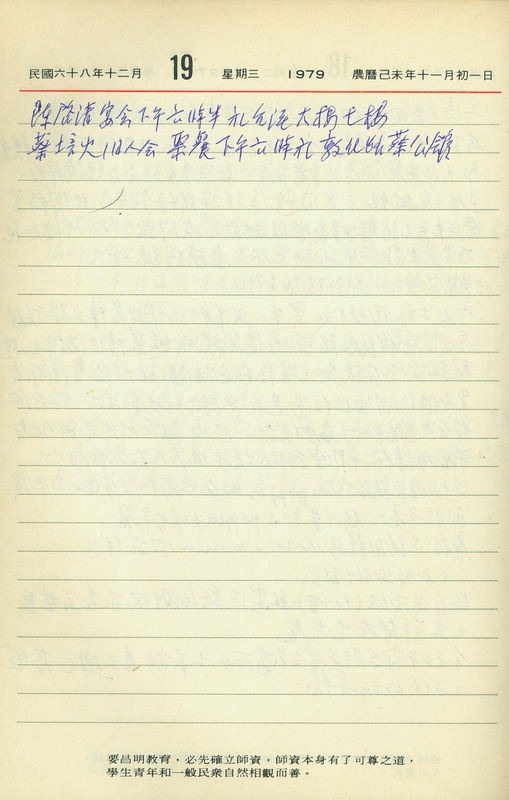 民國六十八年十二月 19 星期三 1979 農曆己未年十一月初一日
陈啓清宴会下午六時半礼台泥大楼七楼
蔡培火118人会 聚餐下午六時礼敦化路葉公館
要昌明教育，必先確立師資，師資本身有了可尊之道，
學生青年和一般民衆自然相觀而善。